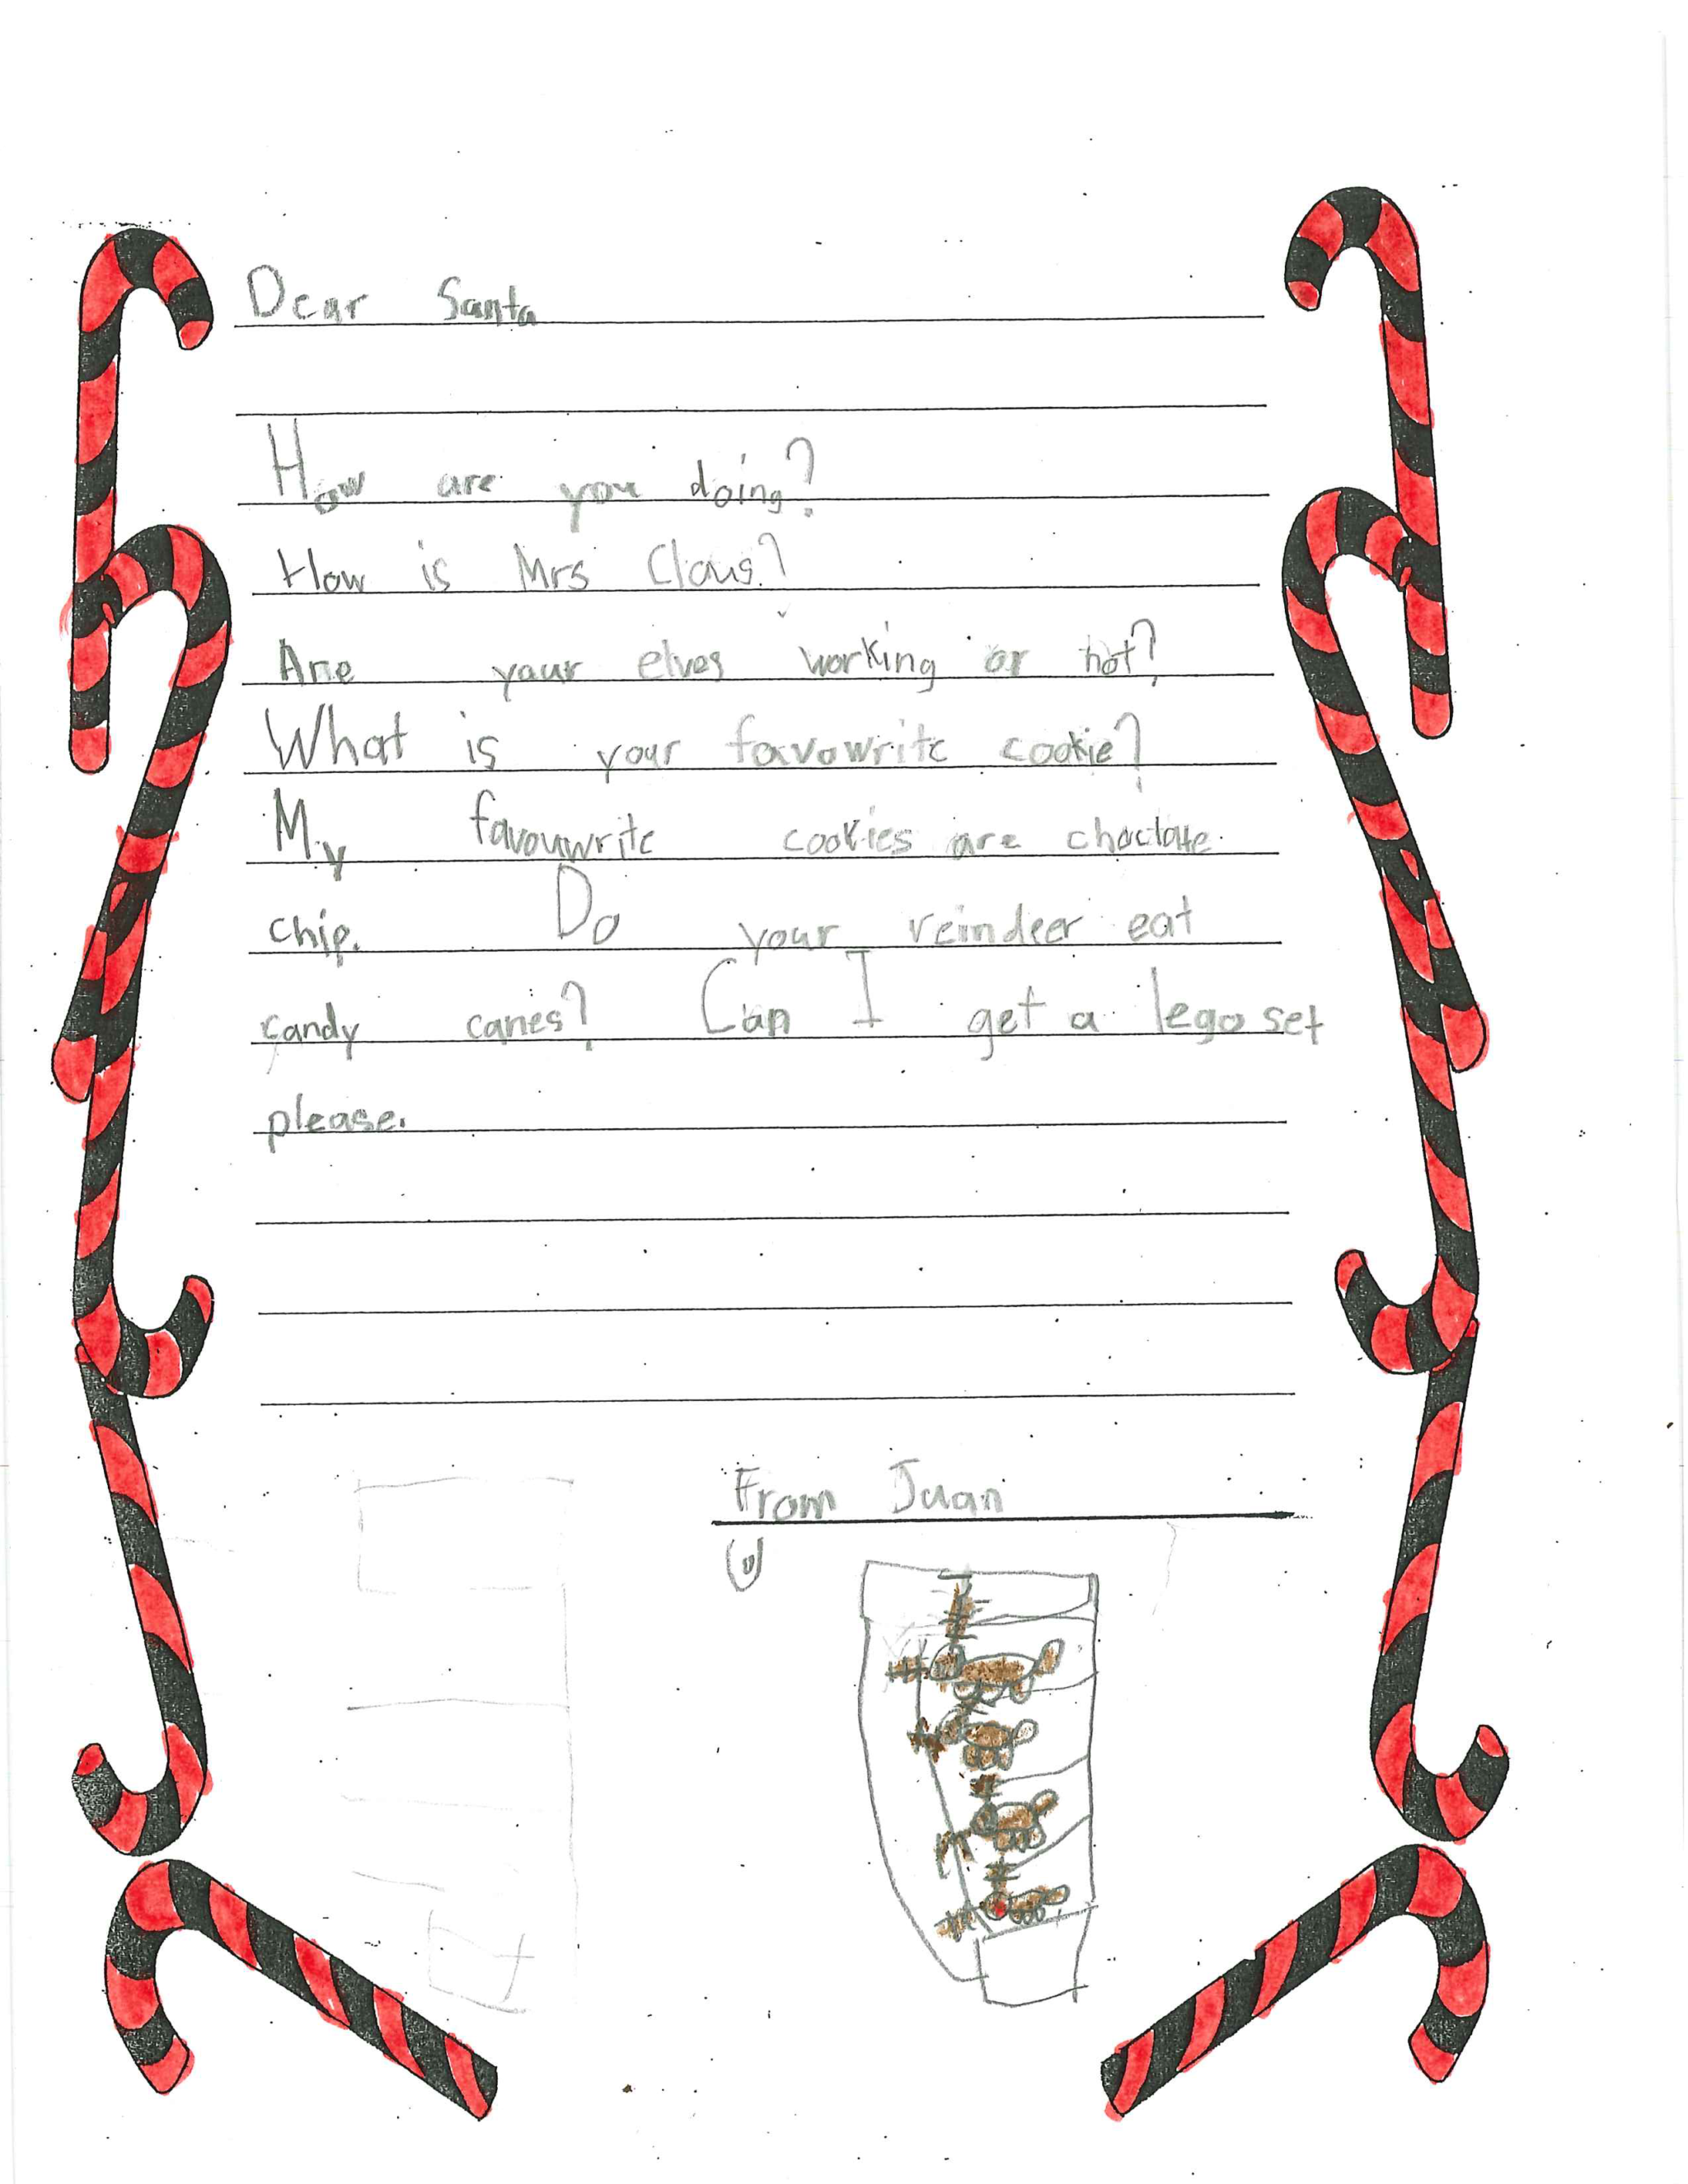 Dear Santa
How are you doing?
How is Mrs Claus?
Are your elves working or not?
What is your favowrite cookie?
My favouwrite cookies are choclate
chip. Do your reindeer eat
candy canes? Can I get a lego set
please.
From Juan